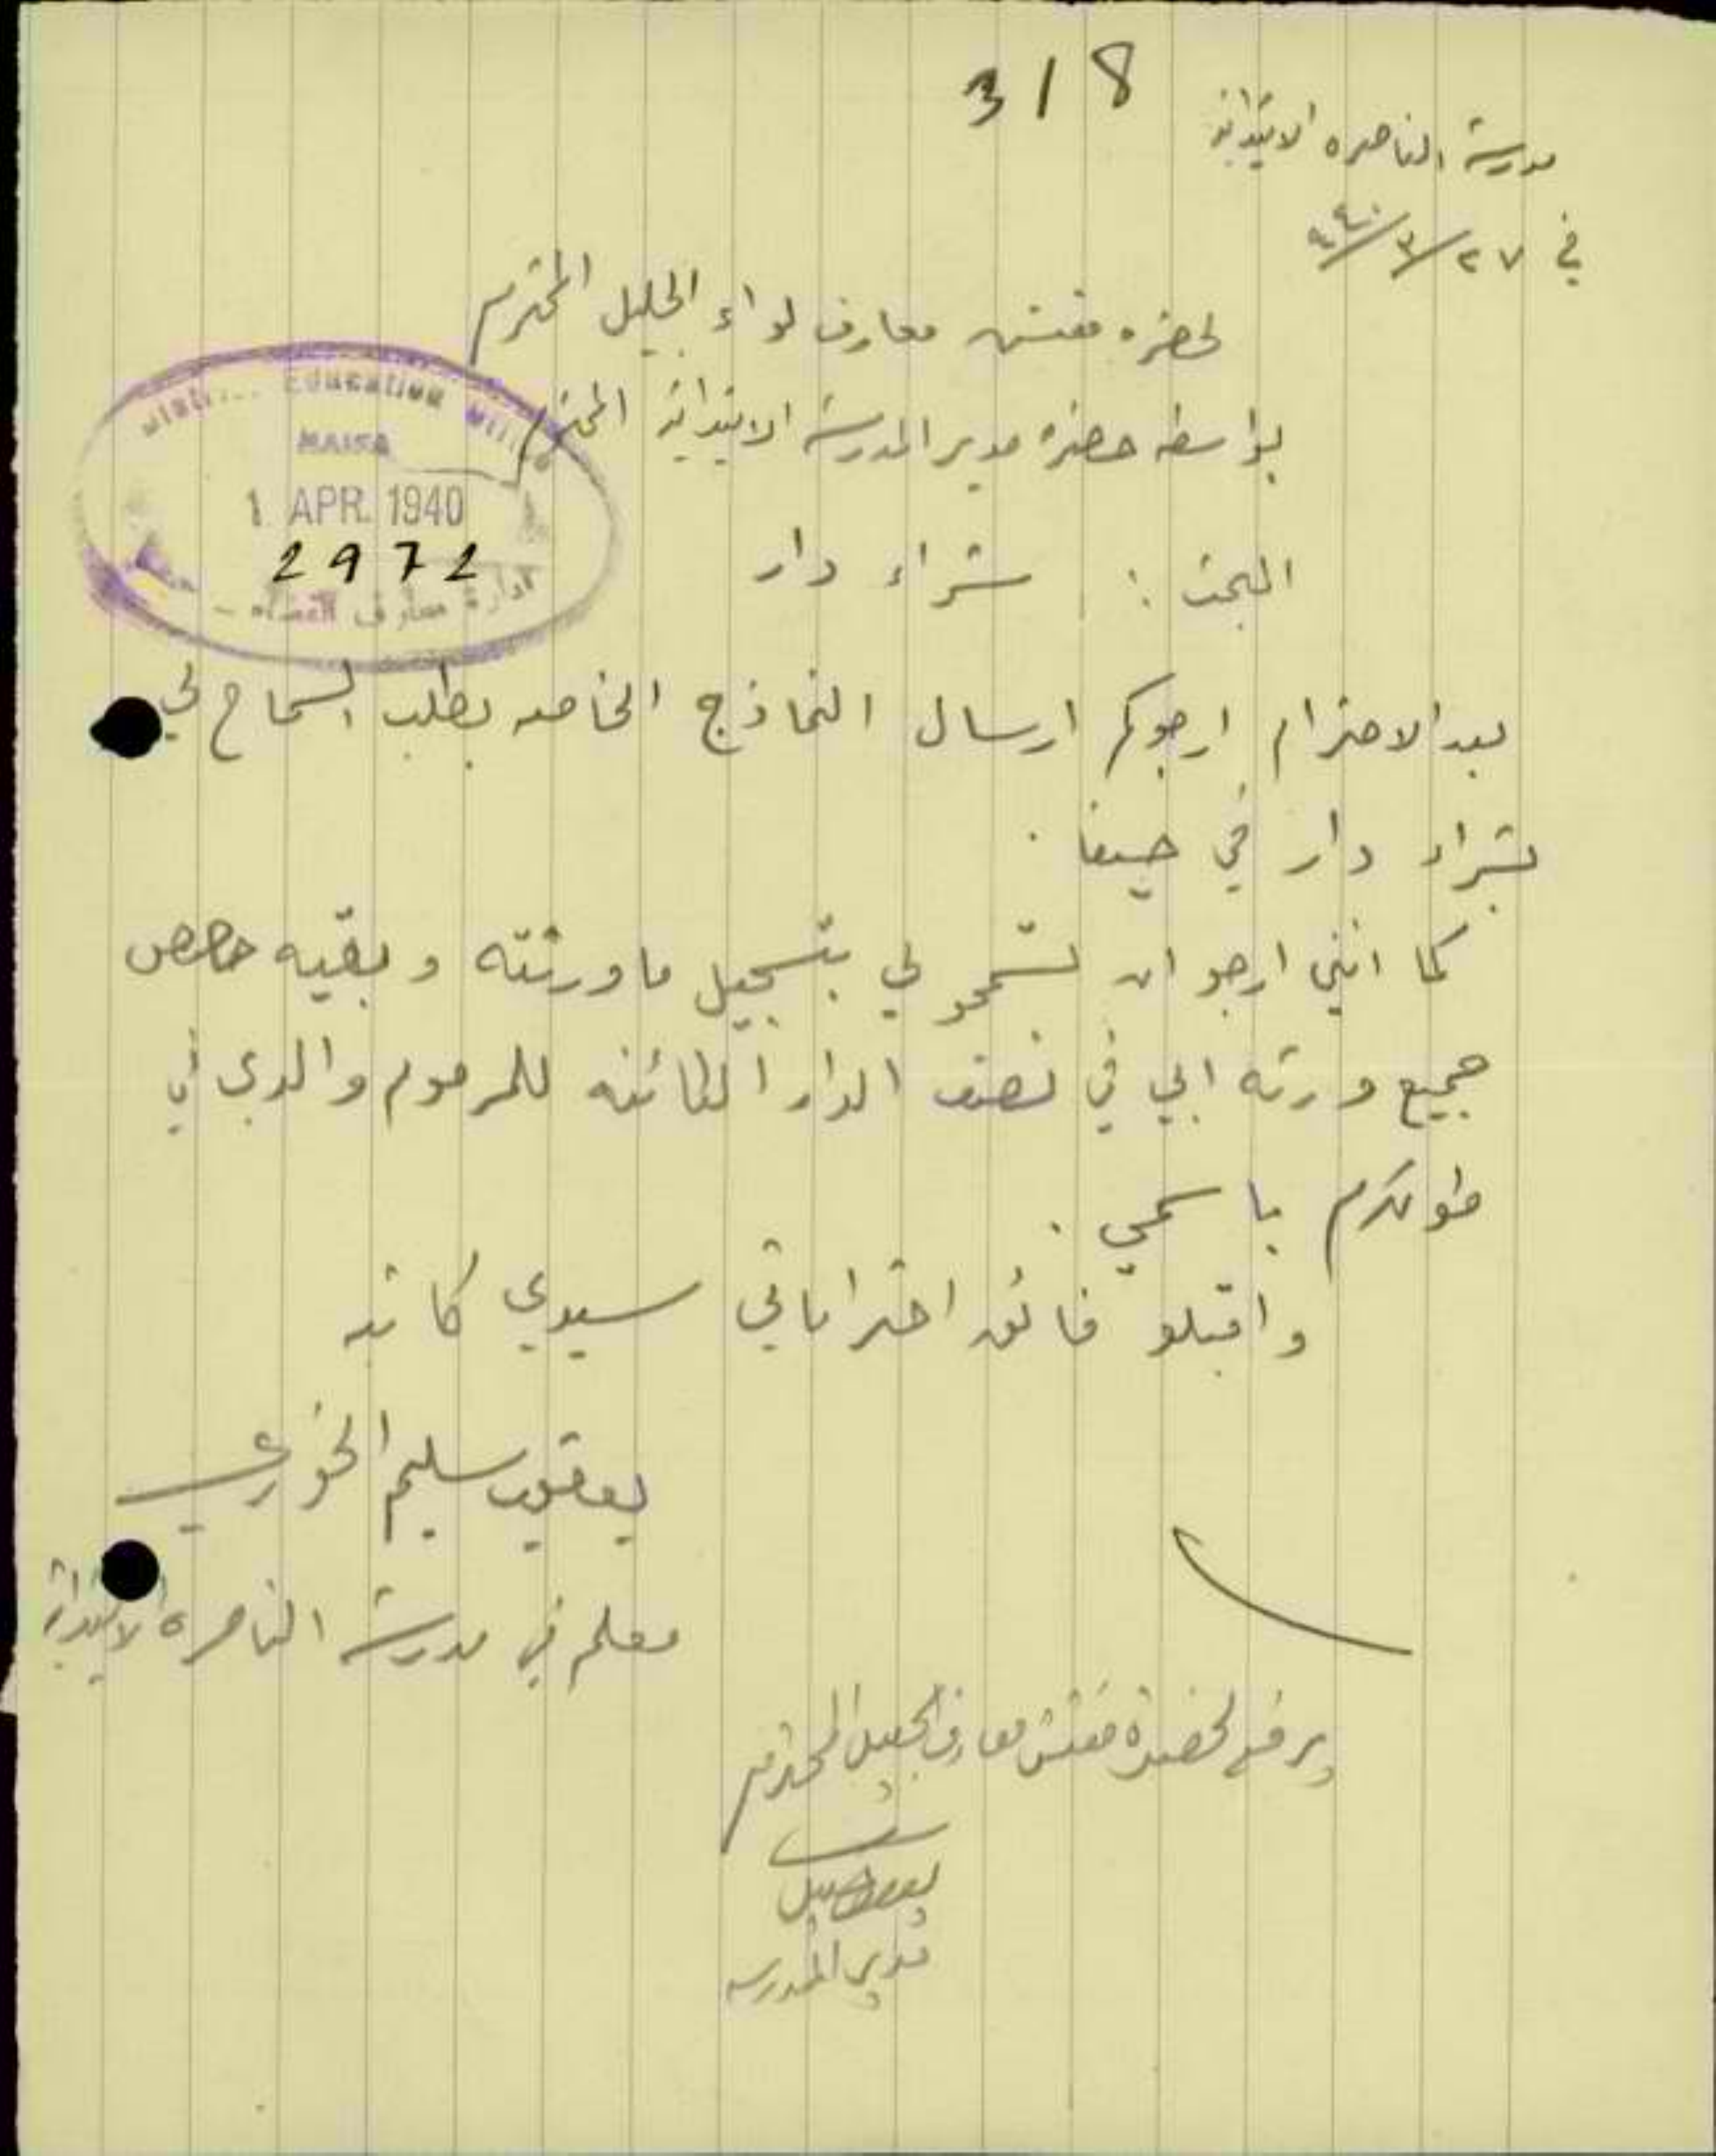 3/8
مدرسة الناصره الابتدائية
في ٢٧/٣/٩٤٠
لحضره مفتش معارف لواء الجليل المحترم
بواسطه حضرة مدير المدرسة الابتدائية المحترم
District Education Office
HAIFA
1 APR. 1940
2972
ادارة معارف القضاء
البحث : شراء دار
بعد الاحترام ارجوكم ارسال النماذج الخاصه بطلب السماح لي
بشراء دار في حيفا .
كما انني ارجو ان تسمحو لي بتسجيل ما ورثته و بقيه حصص
جميع ورثه ابي في نصف الدار الكائنه للمرحوم والدي في
طولكرم باسمي .
واقبلو فائق احتراماتي سيدي كاتبه
يعقوب سليم الخوري
معلم في مدرسة الناصره الابتدائية
يرفع لحضرة مفتش معارف الجليل المحترم
مدير المدرسه